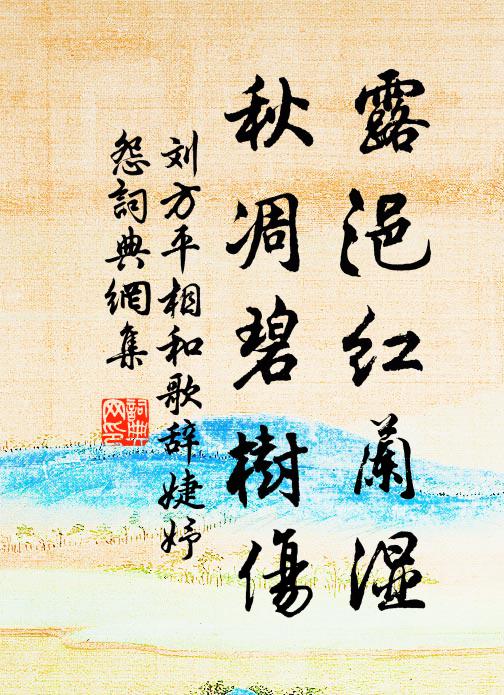 露浥红蘭湿
秋凋碧樹傷
刘方平相和歌辞婕妤
怨詞典網集
詞典网印